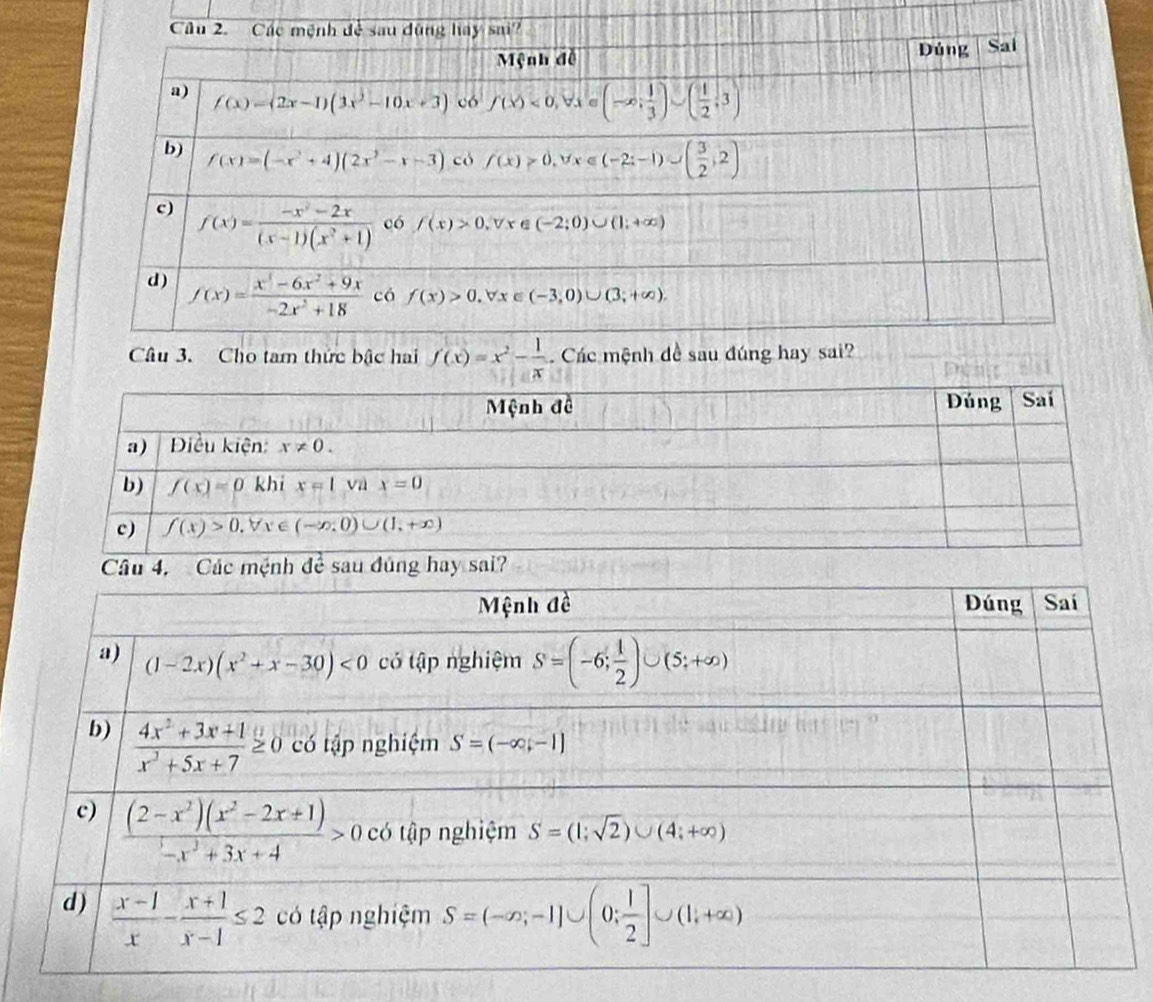 Câu 2. Các mệnh đề sau đúng hay sai?
Mệnh đề Đúng Sai
a) f(x)=(2x-1)(3x²-10x+3) có f(x)<0, ∀x∈(-∞;1/3)∪(1/2;3)
b) f(x)=(-x²+4)(2x²-x-3) có f(x)>0, ∀x∈(-2;-1)∪(3/2;2)
c) f(x)=(-x²-2x)/((x-1)(x²+1)) có f(x)>0, ∀x∈(-2;0)∪(1;+∞)
d) f(x)=(x³-6x²+9x)/(-2x²+18) có f(x)>0, ∀x∈(-3;0)∪(3;+∞).
Câu 3. Cho tam thức bậc hai f(x)=x²-1/x. Các mệnh đề sau đúng hay sai?
Mệnh đề Đúng Sai
a) Điều kiện: x≠0.
b) f(x)=0 khi x=1 và x=0
c) f(x)>0, ∀x∈(-∞;0)∪(1;+∞)
Câu 4. Các mệnh đề sau đúng hay sai?
Mệnh đề Đúng Sai
a) (1-2x)(x²+x-30)<0 có tập nghiệm S=(-6;1/2)∪(5;+∞)
b) (4x²+3x-1)/(x²+5x+7)≥0 có tập nghiệm S=(-∞;-1]
c) ((2-x²)(x²-2x+1))/(-x²+3x+4)>0 có tập nghiệm S=(1;√2)∪(4;+∞)
d) (x-1)/x-(x+1)/(x-1)≤2 có tập nghiệm S=(-∞;-1]∪(0;1/2]∪(1;+∞)